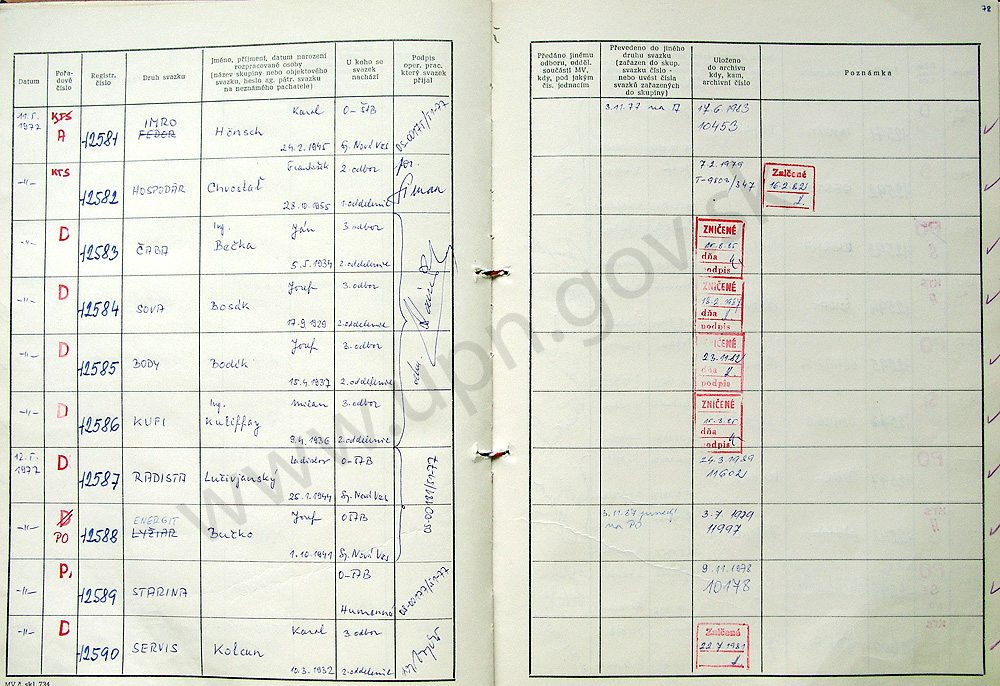 78
Datum
Pořa-
dové
číslo
Registr.
číslo
Druh svazku
Jméno, příjmení, datum narození
rozpracované osoby
(název skupiny nebo objektového
svazku, heslo ag. pátr. svazku
na neznámého pachatele)
U koho se
svazek
nachází
Podpis
oper. prac.
který svazek
přijal
Předáno jinému
odboru, odděl.
součásti MV,
kdy, pod jakým
čís. jednacím
Převedeno do jiného
druhu svazku
(zařazen do skup.
svazku číslo -
nebo uvést čísla
svazků zařazených
do skupiny)
Uloženo
do archivu
kdy, kam,
archivní číslo
Poznámka
11.5.
1972
KTS
A
12581
IMRO
FEDOR
Karol
Hönsch
24.2.1945
O-ŠtB
Sp. Nová Ves
3.11.77 na A
17.6.1983
10453
-11-
KTS
12582
HOSPODÁR
František
Chvostaľ
28.10.1955
2. odbor
1. oddelenie
7.2.1979
T-9802/347
Zničené
16.2.82
-11-
D
12583
ČABA
Ing. Ján
Bečka
5.5.1934
3. odbor
2. oddelenie
ZNIČENÉ
15.8.85
dňa
podpis
-11-
D
12584
SOVA
Jozef
Bosák
17.9.1929
3. odbor
2. oddelenie
ZNIČENÉ
dňa
podpis
-11-
D
12585
BODY
Jozef
Bodík
15.4.1937
3. odbor
2. oddelenie
ZNIČENÉ
23.11.82
dňa
podpis
-11-
D
12586
KUFI
Ing. Milan
Kuziffay
9.4.1936
3. odbor
2. oddelenie
ZNIČENÉ
15.8.85
dňa
podpis
12.5.
1972
D
12587
RADISTA
Ladislav
Lučivjanský
25.1.1944
O-ŠtB
Sp. Nová Ves
24.3.1989
11602
-11-
D
PO
12588
ENERGIT
LYŽIAR
Jozef
Bučko
1.10.1941
OŠtB
Sp. Nová Ves
na PO
3.7.1979
11997
-11-
P.
12589
STARINA
O-ŠtB
Humenné
9.11.1978
10178
-11-
D
12590
SERVIS
Karol
Kolcun
10.3.1932
3. odbor
2. oddelenie
Zničené
22.7.1981
MV č. skl. 734
www.upn.gov.sk